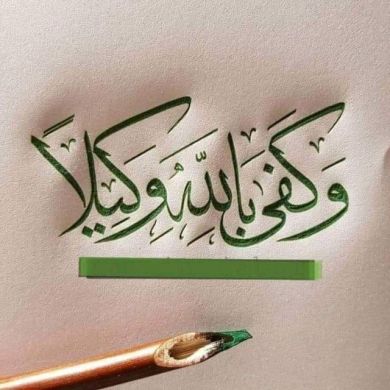 وَكَفَى بِاللَّهِ وَكِيلاً